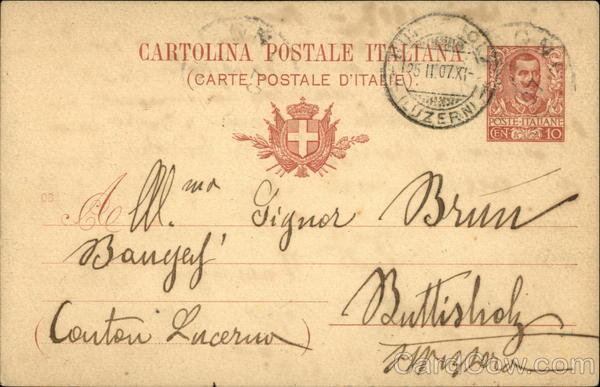 CARTOLINA POSTALE ITALIANA
(CARTE POSTALE D'ITALIE)
25 II 07.XI-
(LUZERN)
POSTE·ITALIANE
CEN 10
06
A Ill.mo Signor Brun
Baugesch'
Buttisholz
(Canton Lucerna)
Svizzera
CardCow.com